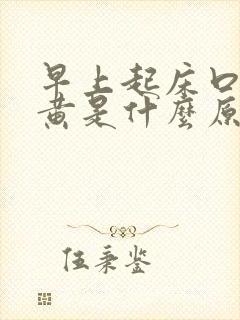 早上起床口
黄是什麽原
伍秉鉴